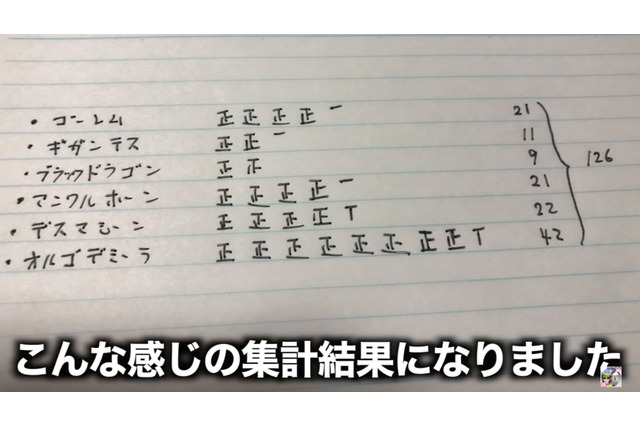 ・ゴーレム 正正正正一 21
・ギガンテス 正正一 11
・ブラックドラゴン 正正 9
・アニマルホーン 正正正正一 21
・デスマシーン 正正正正T 22
・オルゴデミーラ 正正正正正正正正T 42
126
こんな感じの集計結果になりました